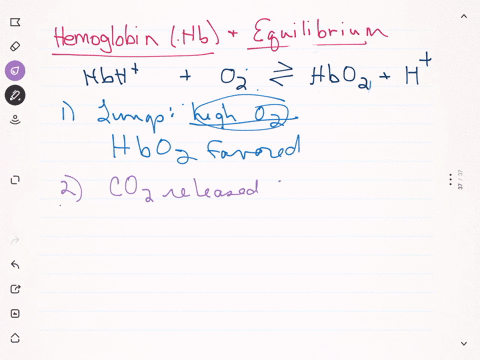 Hemoglobin (Hb) + Equilibrium
HbH⁺ + O₂ ⇌ HbO₂ + H⁺
1) Lungs: high O₂
HbO₂ Favored
2) CO₂ released
37 / 37